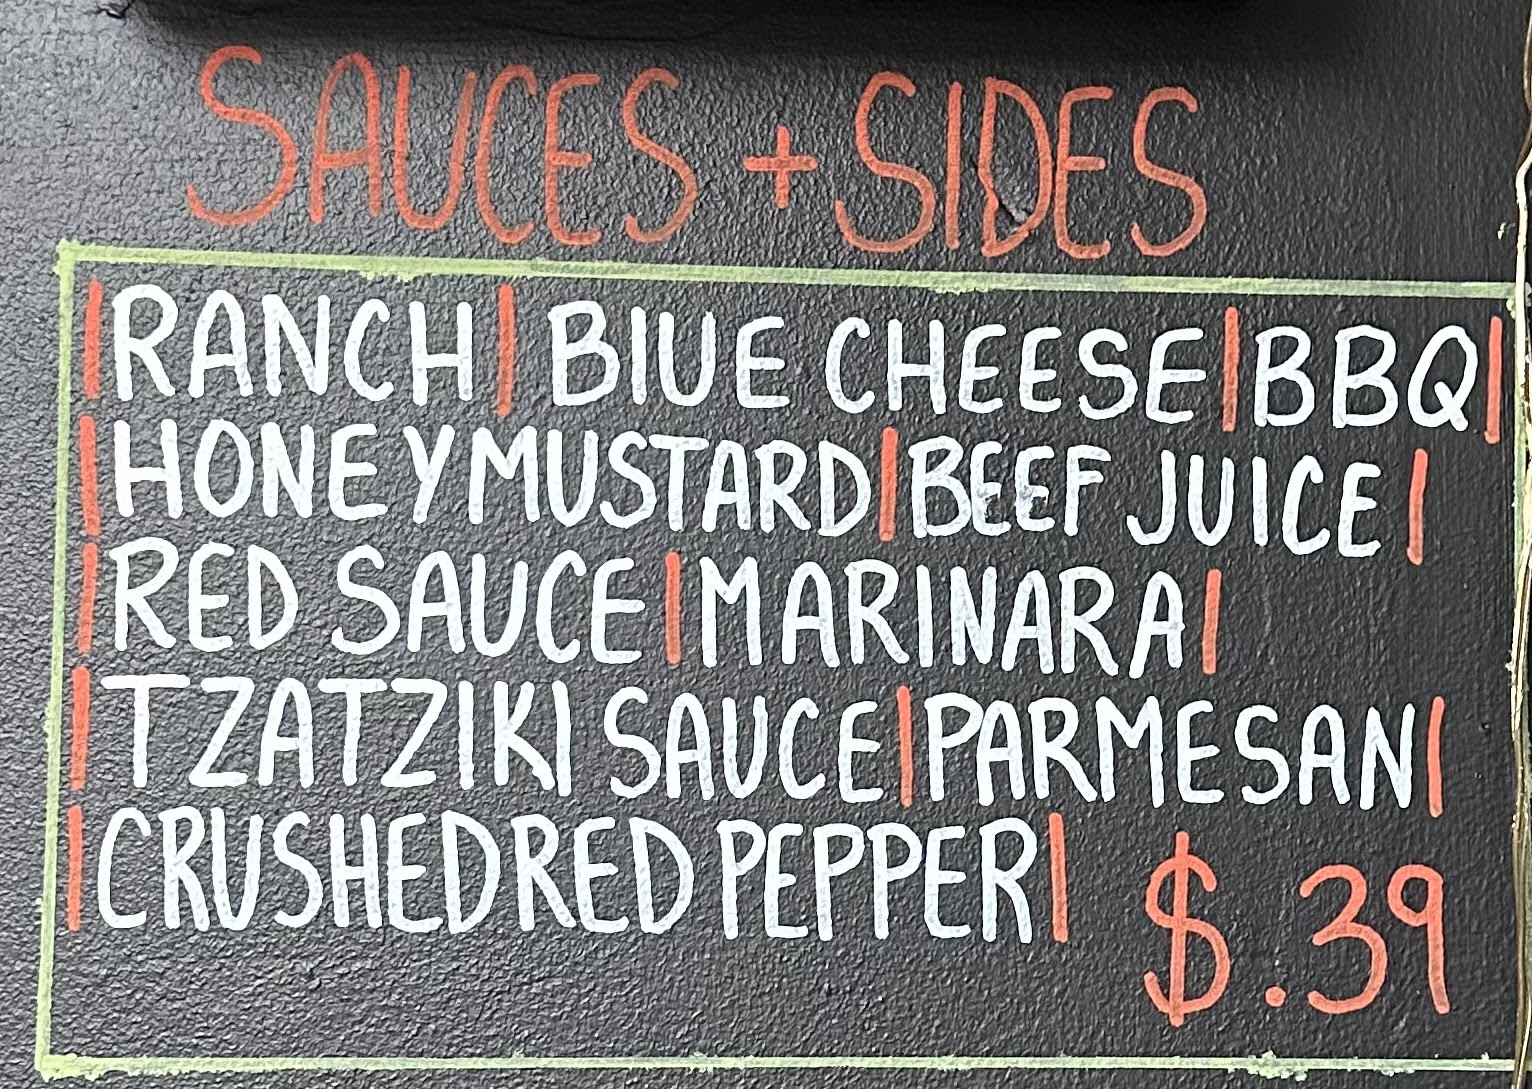 SAUCES + SIDES
| RANCH | BLUE CHEESE | BBQ |
| HONEY MUSTARD | BEEF JUICE |
| RED SAUCE | MARINARA |
| TZATZIKI SAUCE | PARMESAN |
| CRUSHED RED PEPPER |
$.39